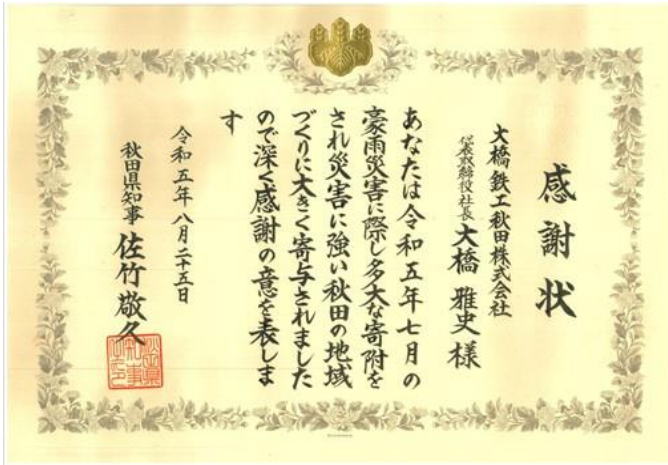 感謝状
大橋鉄工秋田株式会社
代表取締役社長 大橋雅史様
あなたは令和五年七月の
豪雨災害に際し多大な寄附を
され災害に強い秋田の地域
づくりに大きく寄与されました
ので深く感謝の意を表しま
す
令和五年八月二十五日
秋田県知事 佐竹敬久